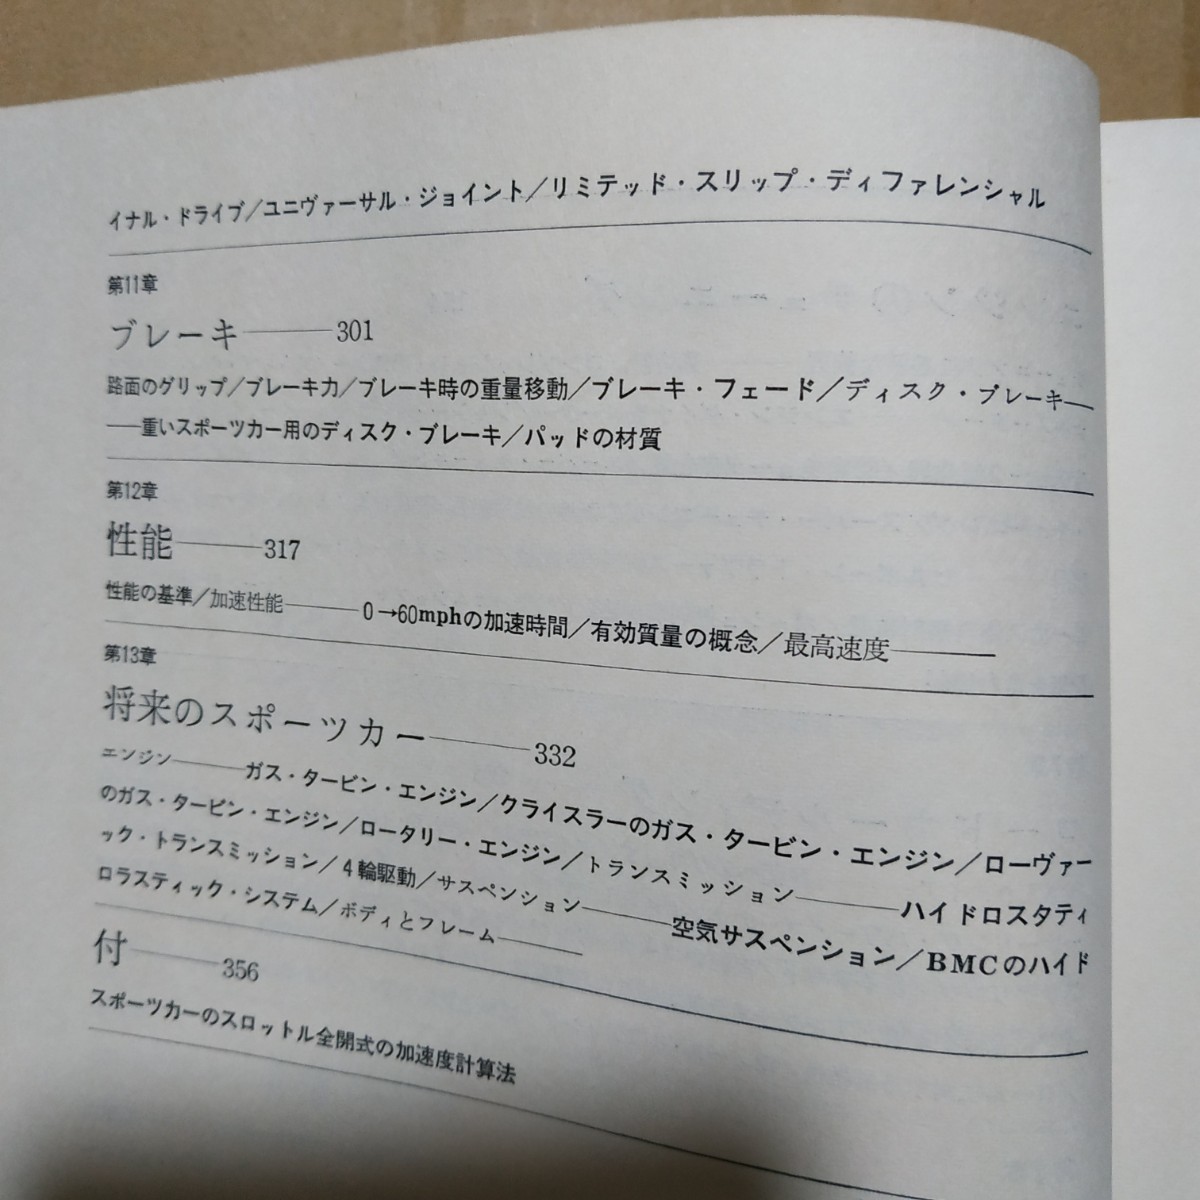 イナル・ドライブ/ユニヴァーサル・ジョイント/リミテッド・スリップ・ディファレンシャル
第11章
ブレーキ――301
路面のグリップ/ブレーキ力/ブレーキ時の重量移動/ブレーキ・フェード/ディスク・ブレーキ―
―重いスポーツカー用のディスク・ブレーキ/パッドの材質
第12章
性能――317
性能の基準/加速性能――0→60mphの加速時間/有効質量の概念/最高速度――
第13章
将来のスポーツカー――332
エンジン――ガス・タービン・エンジン/クライスラーのガス・タービン・エンジン/ローヴァー
のガス・タービン・エンジン/ロータリー・エンジン/トランスミッション――ハイドロスタティ
ック・トランスミッション/4輪駆動/サスペンション――空気サスペンション/BMCのハイド
ロラスティック・システム/ボディとフレーム――
付――356
スポーツカーのスロットル全開式の加速度計算法